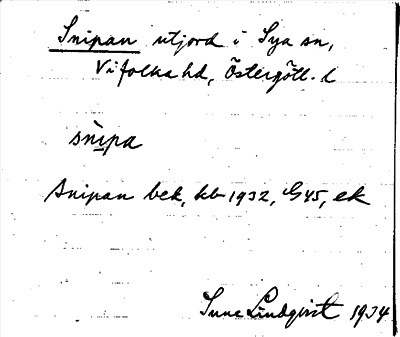 Snipan utjord i Sya sn,
Vifolka hd, Östergötl. l
sni̠pa
Snipan bek, kb 1932, G45, ek
Sune Lindqvist 1934